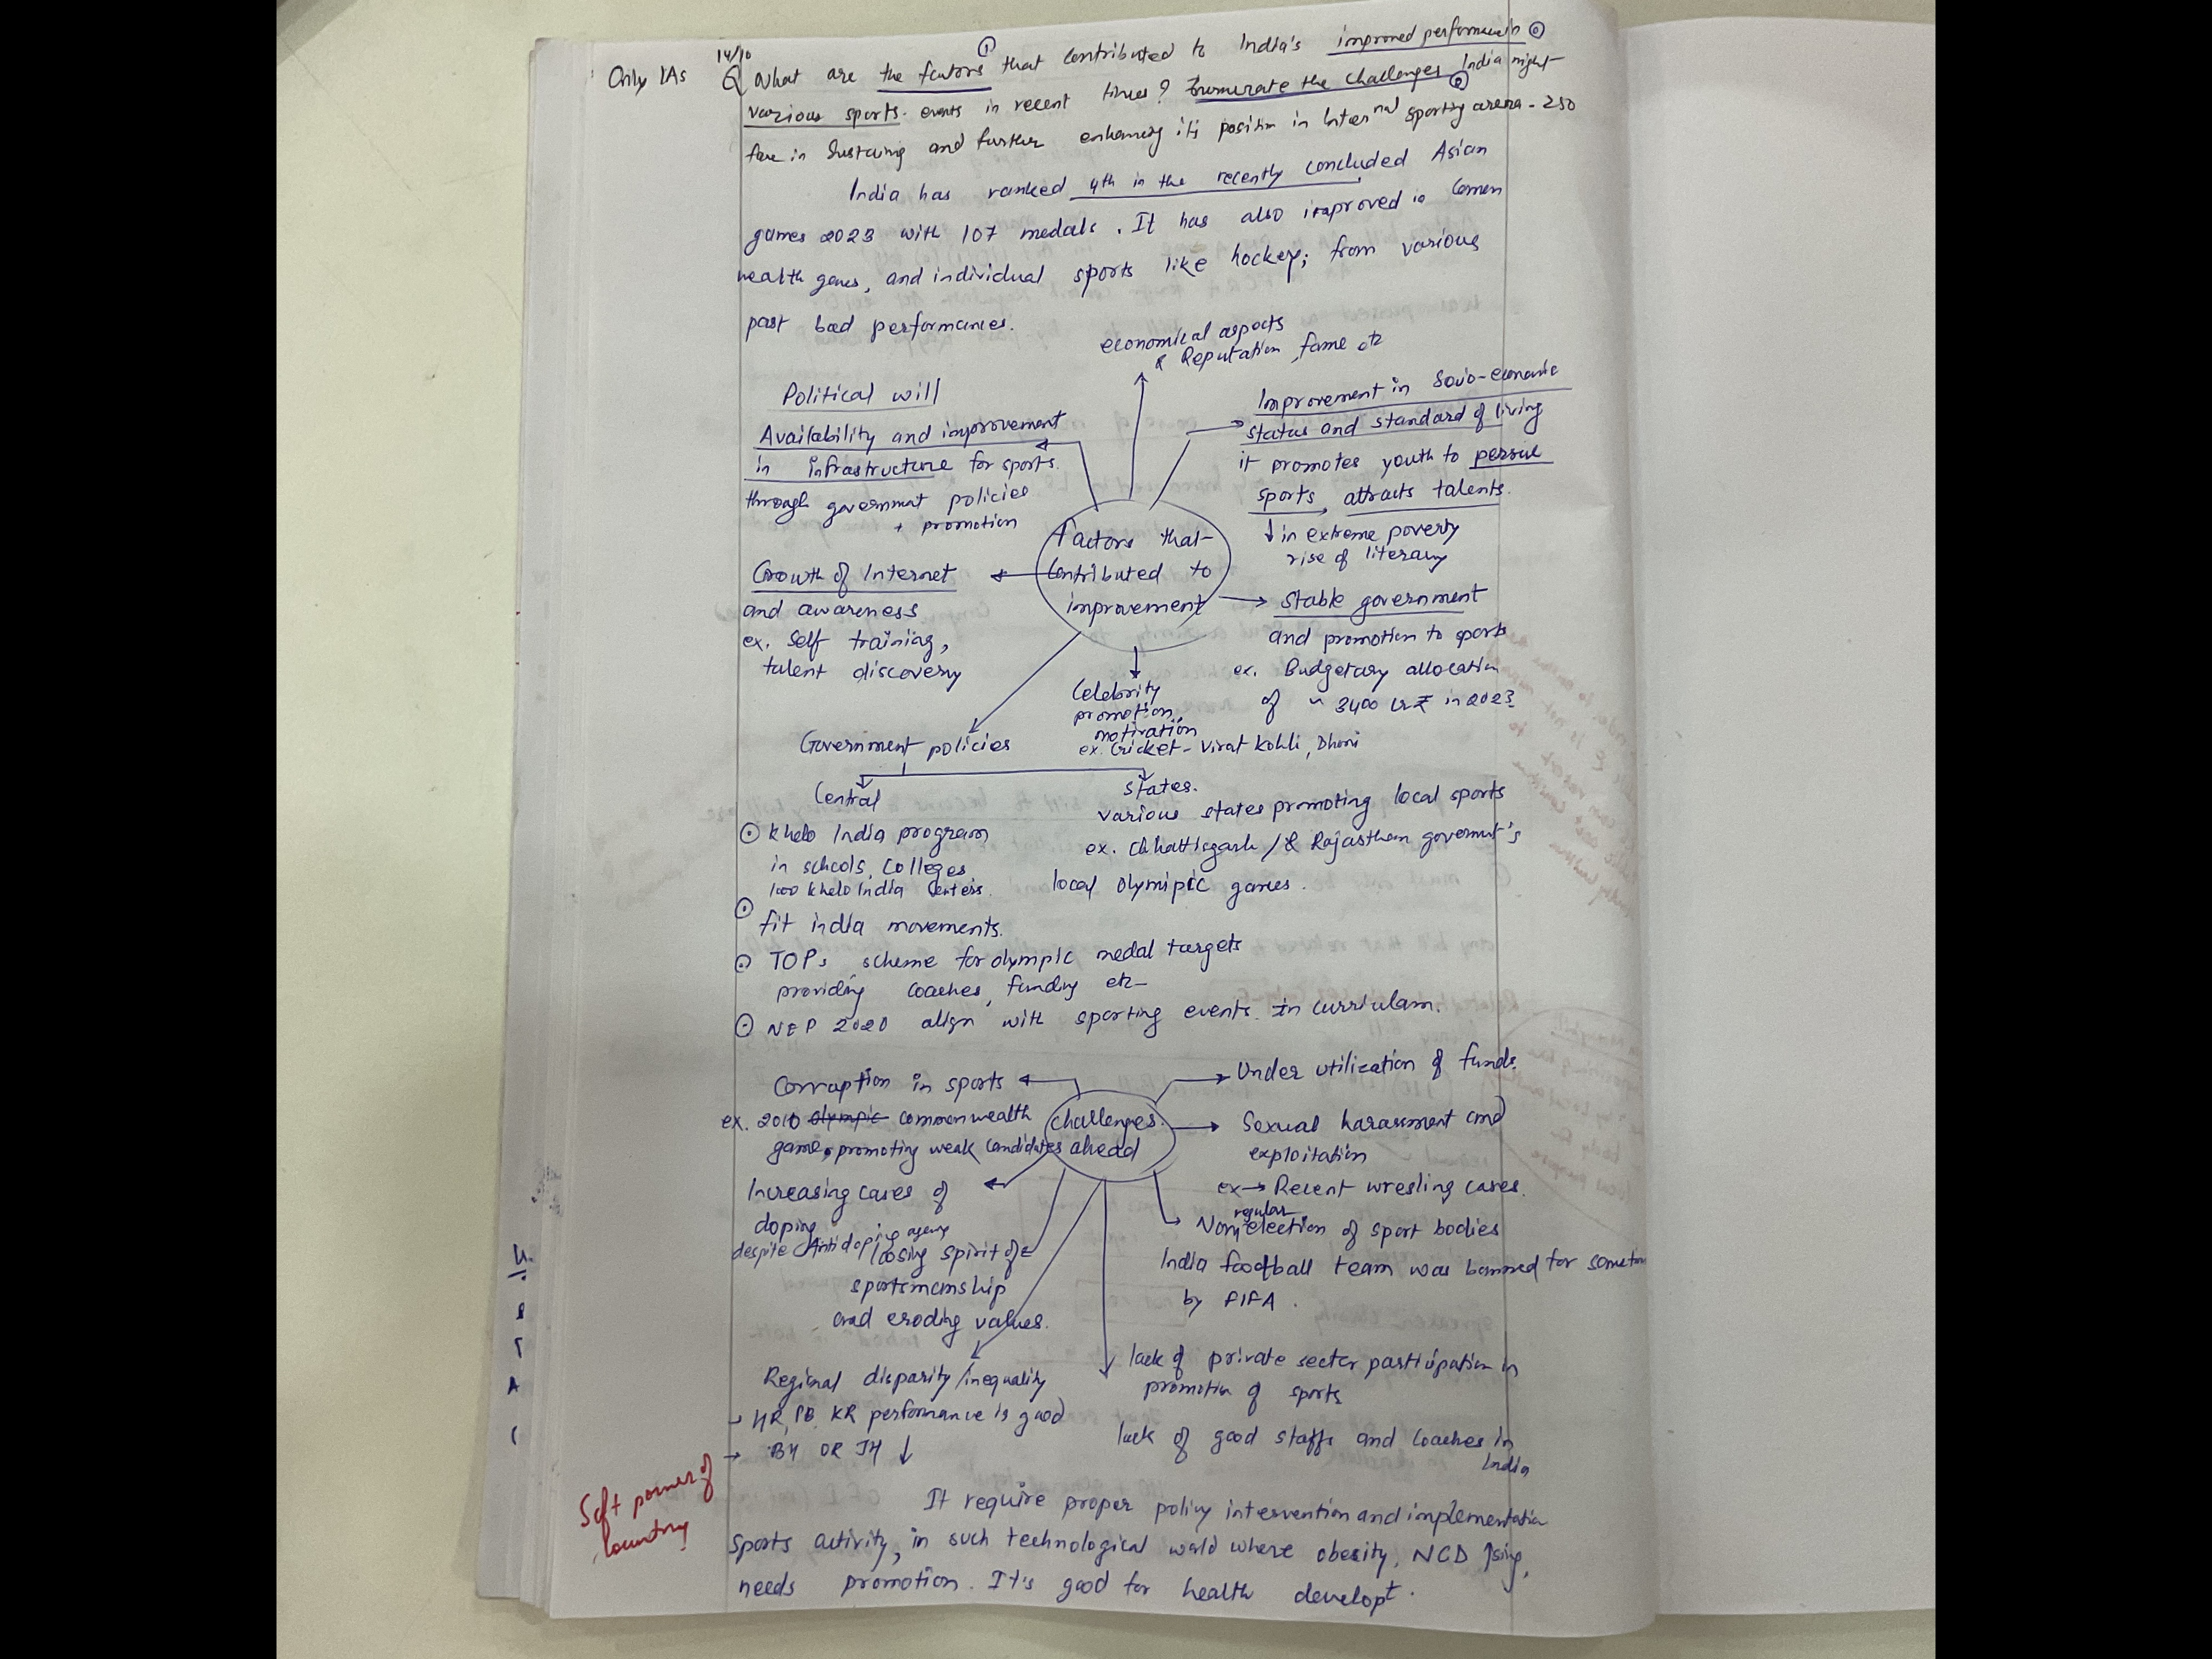 14/10
Only IAS
Q What are the factors ① that contributed to India's improved performance in ⓪
various sports. events in recent times? Enumerate the challenges ② India might
face in sustaing and further enhancing its position in Internal sporting arena - 250
India has ranked 4th in the recently concluded Asian
games 2023 with 107 medals. It has also improved in Common
wealth games, and individual sports like hockey; from various
past bad performances.
economical aspects
& Reputation, fame etc
Political will
Availability and improvement
in infrastructure for sports.
through government policies
+ promotion
Improvement in Socio-economic
status and standard of living
it promotes youth to persue
sports, attracts talents.
↓ in extreme poverty
rise of literacy
Factors that
contributed to
improvement
Growth of Internet
and awareness
ex. Self training,
talent discovery
Stable government
and promotion to sports
ex. Budgetary allocation
of ~ 3400 cr ₹ in 2023
Celebrity
promotion,
motivation
ex. Cricket - Virat Kohli, Dhoni
Government policies
Central
⊙ Khelo India program
in schools, colleges
1000 khelo India centers.
⊙ fit india movements.
⊙ TOPs scheme for olympic medal targets
providing coaches, funding etc
⊙ NEP 2020 align with sporting events in curriculam.
States.
various states promoting local sports
ex. Chhattisgarh / & Rajasthan governmt's
local olymipic games.
Corruption in sports
ex. 2010 Olympic commonwealth
game, promoting weak candidates
Challenges
ahead
Under utilization of funds.
Sexual harassment and
exploitation
ex → Recent wresling cases.
Increasing cases of
doping
despite Antidoping agency
regular
Non election of sport bodies
India football team was banned for sometim
by FIFA.
loosing spirit of
sportsmanship
and eroding values.
Regional disparity/inequality
→ HR, PB, KR performance is good
→ BH OR JH ↓
lack of private sector participation in
promotion of sports
lack of good staffs and coaches in
India
Soft power of
country
It require proper policy intervention and implementation
sports activity, in such technological world where obesity, NCD ↑sing,
needs promotion. It's good for health developt.